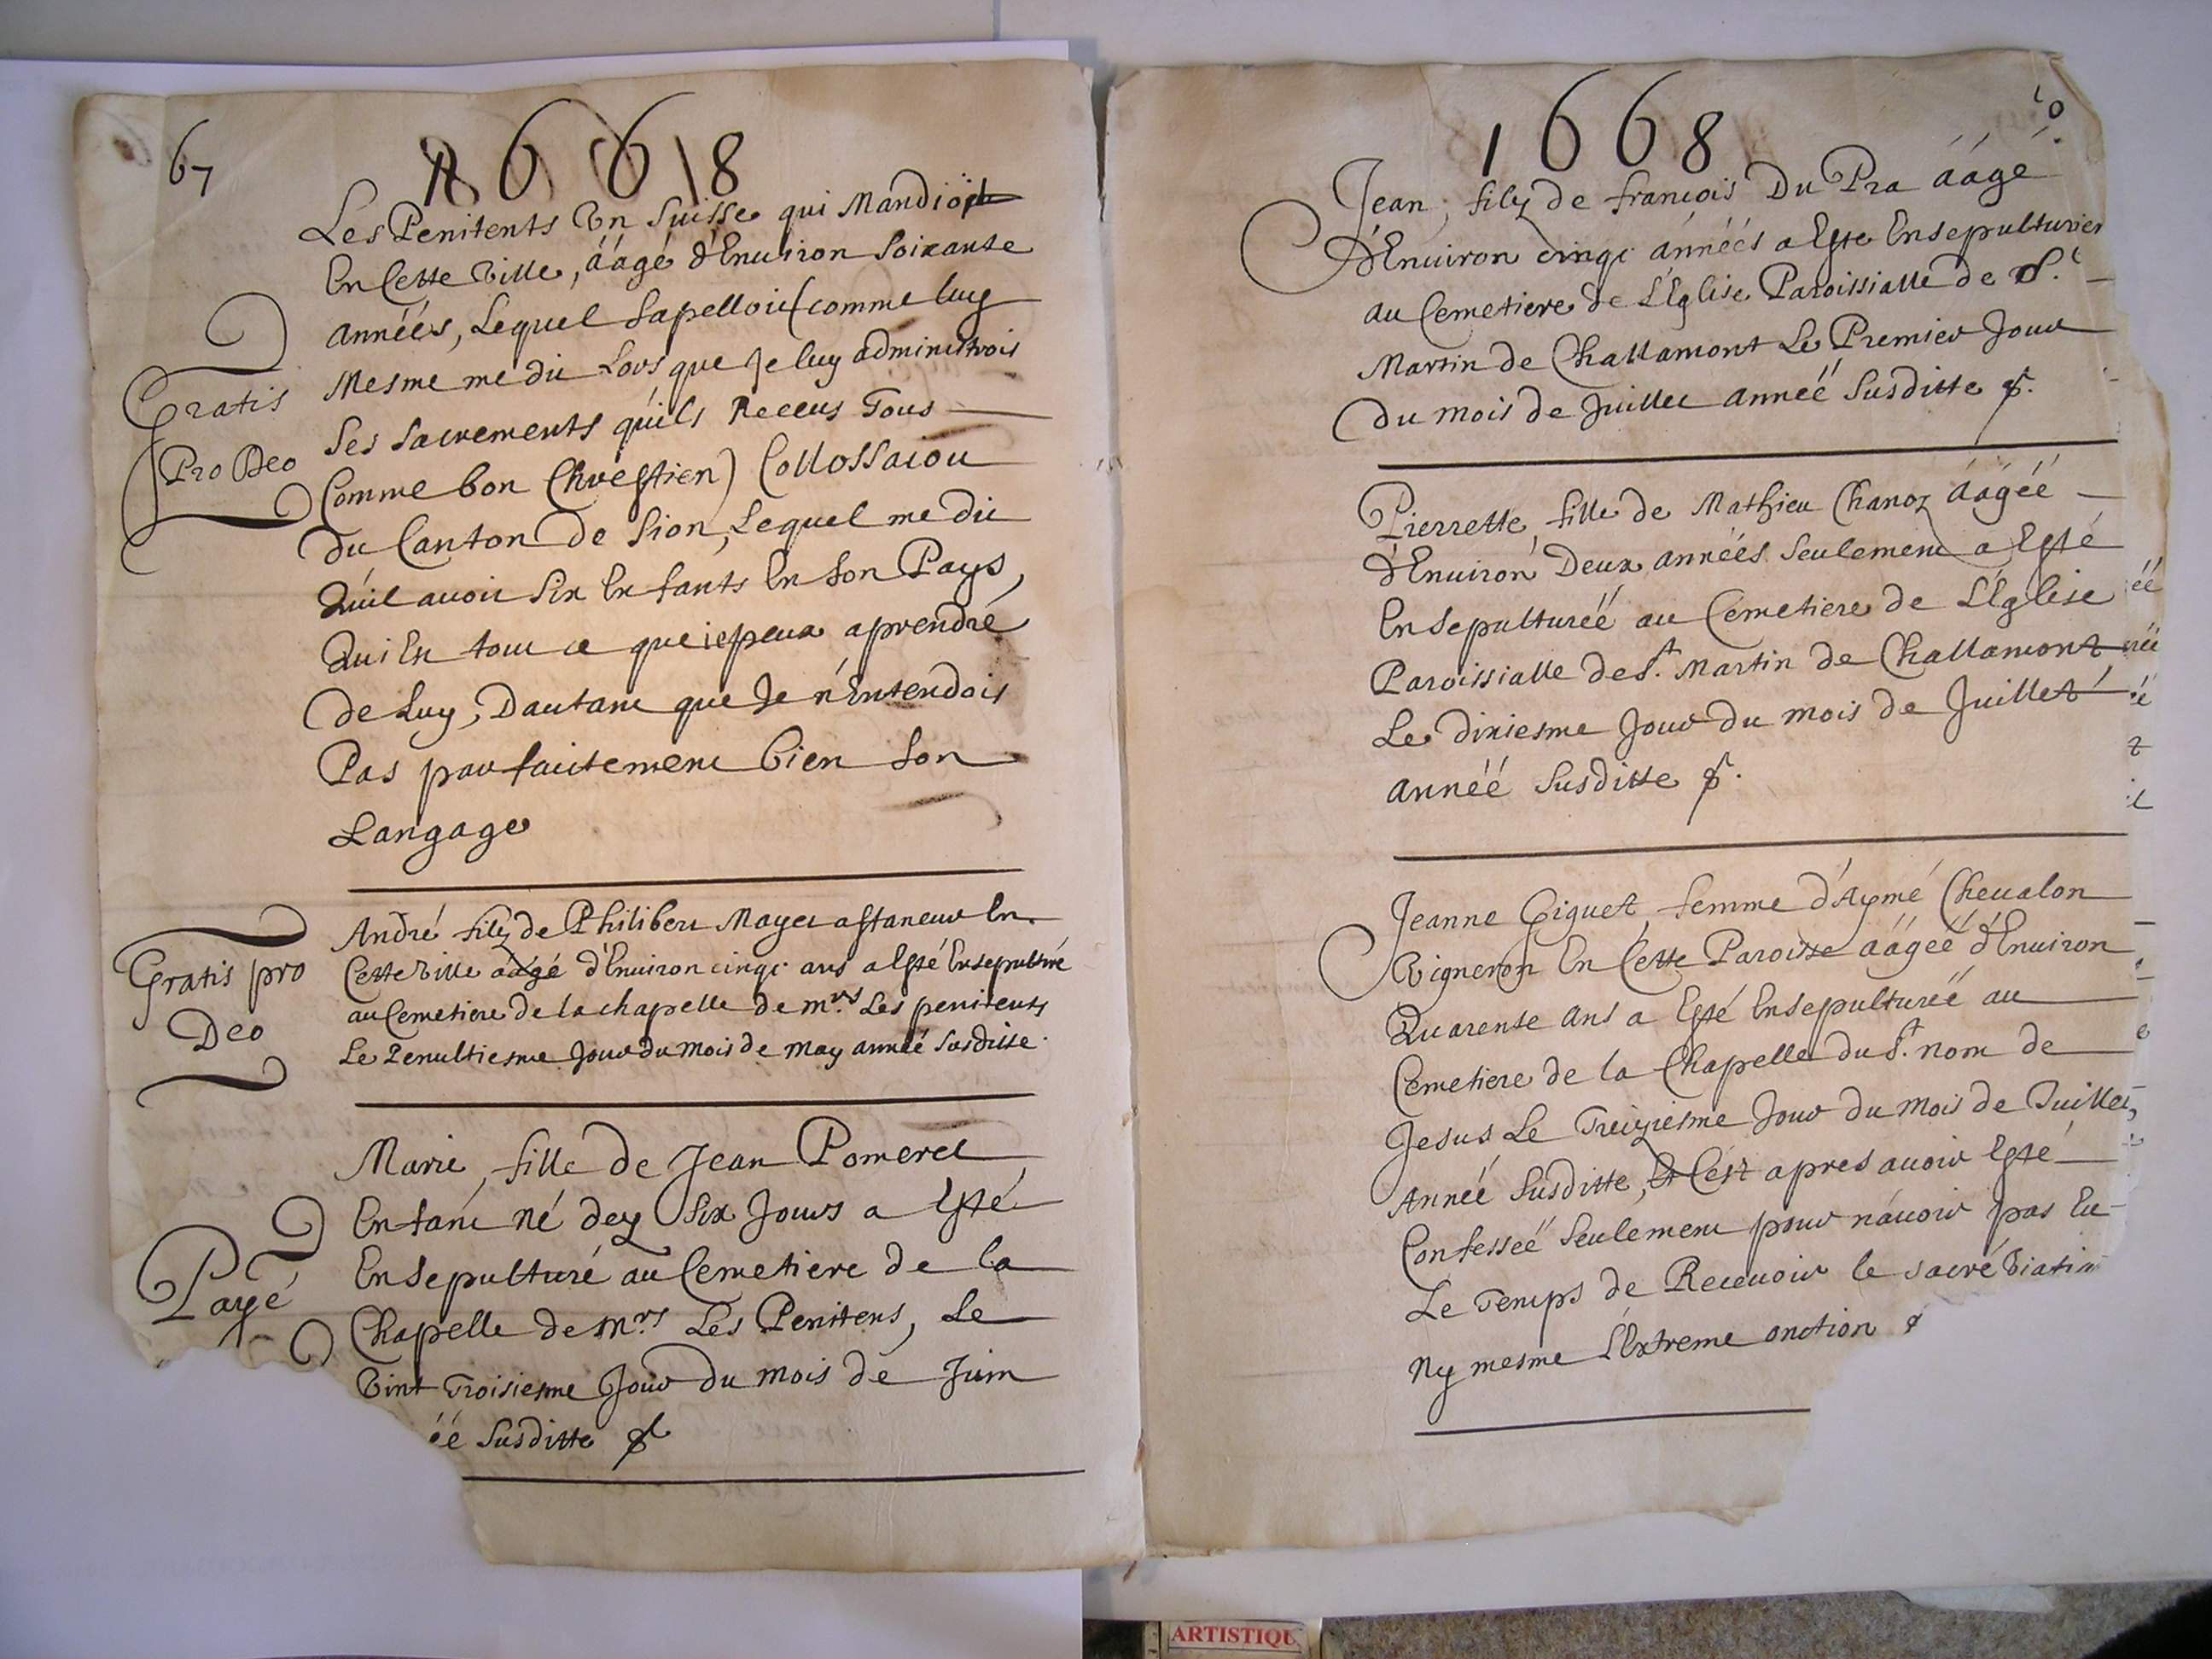 67
1668
Les Penitents Un Suisse qui Mandioit
En Cette Ville, áágé d'Enuiron Soixante
Annéés, Lequel Sapelloit (comme luy
Mesme me dit Lors que Je luy administrois
Ses Sacrements quils Receus Tous
Comme bon Chrestien) Collossaiou
Du Canton de Sion, Lequel me dit
Quil auoit Six Enfants En Son Pays,
Qui En tout ce que ie peux aprendré
de Luy, Dautant que Je n'Entendois
Pas parfaitement bien Son
Langage
Gratis
Pro Deo
André fily de Philibert Mayet astaneur En
Cette Ville áagé d'Enuiron cinqt ans a Esté Ensepulturé
au Cemetiere de la chapelle de mrs Les penitents
Le Penultiesme Jour du Mois de May année Susditte.
Gratis pro
Deo
Marie, fille de Jean Pomeret
Enfant Né dey Six Jours a Esté
Ensepulturé au Cemetiere de la
Chapelle de Mrs Les Penitens, Le
Vint Troisiesme Jour du mois de Juin
éé Susditte
Payé
1668
Jean, fily de francois Du Pra áágé
d'Enuiron cinqt annéés a Este Ensepulturier
au Cemetiere de L'Eglise Paroissialle de St
Martin de Challamont Le Premier Jour
Du mois de Juillet annéé Susditte
Pierrette, fille de Mathieu Chanoz áágéé
d'Enuiron Deux annéés Seulement a Esté
Ensepulturéé au Cemetiere de L'Eglise
Paroissialle de St. Martin de Challamont
Le dixiesme Jour du mois de Juillet
annéé Susditte
Jeanne Giguet, femme d'Aymé Cheualon
Vigneron En Cette Paroisse áágéé d'Enuiron
Quarente ans a Esté Ensepulturéé au
Cemetiere de la Chapelle du St. nom de
Jesus Le Treiziesme Jour du Mois de Juillet,
Annéé Susditte, Et C'est apres auoir Esté
Confesséé Seulement pour n'auoir pas Eu
Le Temps de Receuoir le sacré Viati
Ny mesme L'Extreme onction
ARTISTIQU